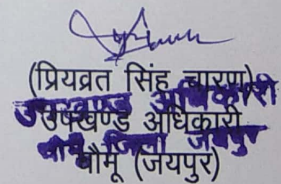 (प्रियव्रत सिंह चारण)
उपखण्ड अधिकारी
उपखण्ड अधिकारी
चौमू जिला जयपुर
चौमू (जयपुर)